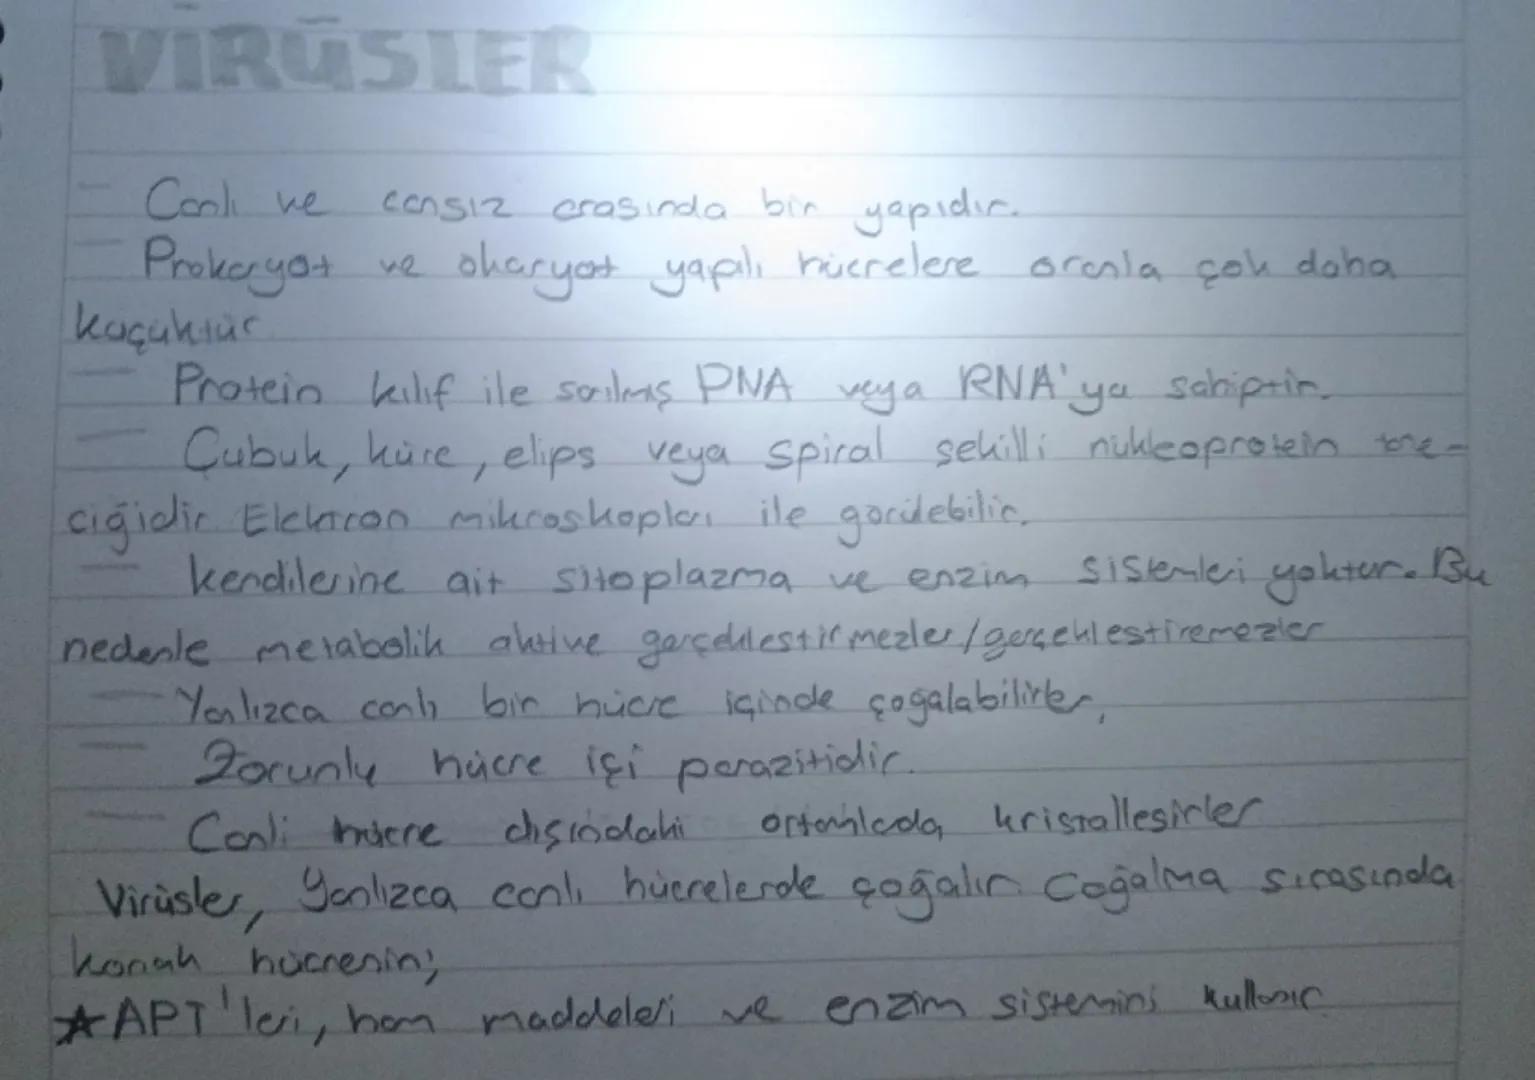 VİRÜSLER
- Canlı ve cansız arasında bir yapıdır.
- Prokaryot ve ökaryot yapılı hücrelere oranla çok daha
küçüktür
- Protein kılıf ile sarılmış DNA veya RNA'ya sahiptir.
- Çubuk, küre, elips veya spiral şekilli nükleoprotein tane-
ciğidir Elektron mikroskopları ile görülebilir.
- kendilerine ait sitoplazma ve enzim sistemleri yoktur. Bu
nedenle metabolik aktive gerçekleştirmezler/gerçekleştiremezler
- Yanlızca canlı bir hücre içinde çoğalabilirler,
- Zorunlu hücre içi parazitidir.
- Canli hücre dışındaki ortamlarda kristalleşirler
Virüsler, Yanlızca canlı hücrelerde çoğalır Coğalma sırasında
konak hücrenin;
★ APT'leri, ham maddeleri ve enzim sistemini kullanır